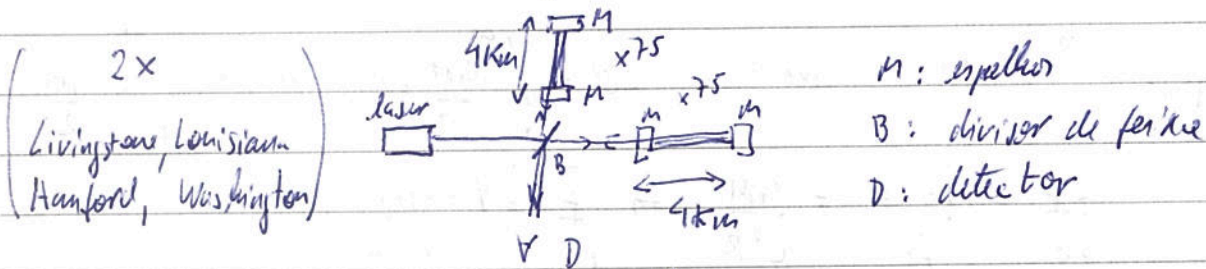 2x
Livingstone, Louisiana
Hanford, Washington
laser
4Km
M
x75
M
B
D
M
x75
M
4Km
M: espelhos
B: divisor de feixe
D: detector